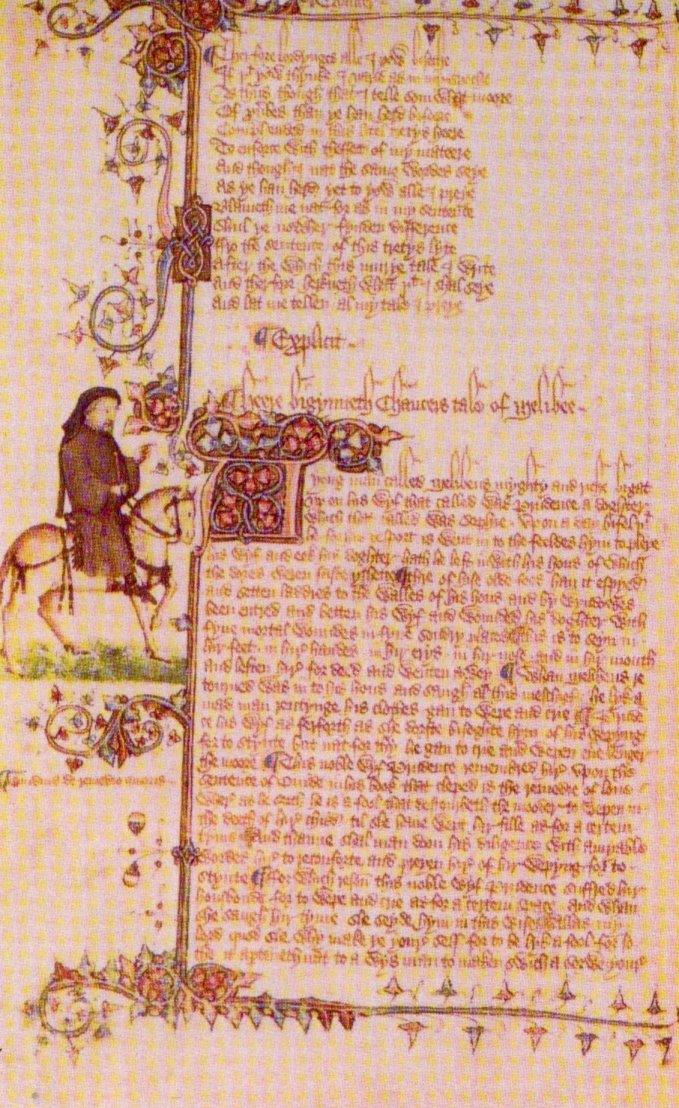 Therfore lordynges alle I yow biseche
If þt yow thynke I varie as in my speche
As thus though that I telle som what moore
Of prouerbes than ye han herd bifoore
Comprehended in this litel tretys heere
To enforce with theffect of my mateere
And though I nat the same wordes seye
As ye han herd yet to yow alle I preye
Blameth me nat for as in my sentence
Shul ye nowher fynden difference
Fro the sentence of this tretys lyte
After the which this murye tale I write
And therfore herkneth what þt I shal seye
And lat me tellen al my tale I preye
Explicit
Heere bigynneth Chaucers tale of Melibee
yong man called Melibeus myghty and riche bigat
vp on his wyf that called was Prudence a doghter
which that called was Sophie Vpon a day bifel þt
he for his desport is went in to the feeldes hym to pleye
his wyf and eek his doghter hath he left inwith his hous of which
the dores weren faste yshette thre of hise olde foos han it espyed
and setten laddres to the walles of his hous and by wyndowes
been entred and betten his wyf and wounded his doghter with
fyue mortal woundes in fyue sondry places this is to seyn in
hir feet in hir handes in hir erys in hir nose and in hir mouth
and leften hire for deed and wenten awey Whan Melibeus re
tourned was in to his hous and saugh al this meschief he lyk a
mad man rentynge his clothes gan to wepe and crie Prude
ce his wyf as ferforth as she dorste bisoghte hym of his wepyng
for to stynte but nat for thy he gan to crie and wepen euere lenger
the moore This noble wyf Prudence remembred hire vpon the
sentence of Ouide in his book that cleped is the remedie of loue
Ouidius de remedio amoris
Wher as he seith he is a fool that destourbeth the mooder to wepen in
the deeth of hire child til she haue wept hir fille as for a certein
tyme And thanne shal man doon his diligence with amyable
wordes hire to reconforte and preyen hire of hir wepyng for to
stynte For which reson this noble wyf Prudence suffred hir
housbonde for to wepe and crie as for a certein space and whan
she saugh hir tyme she seyde hym in this wise Allas my
lord quod she why make ye youre self for to be lyk a fool for so
the it aperteneth nat to a wys man to maken swich a sorwe youre